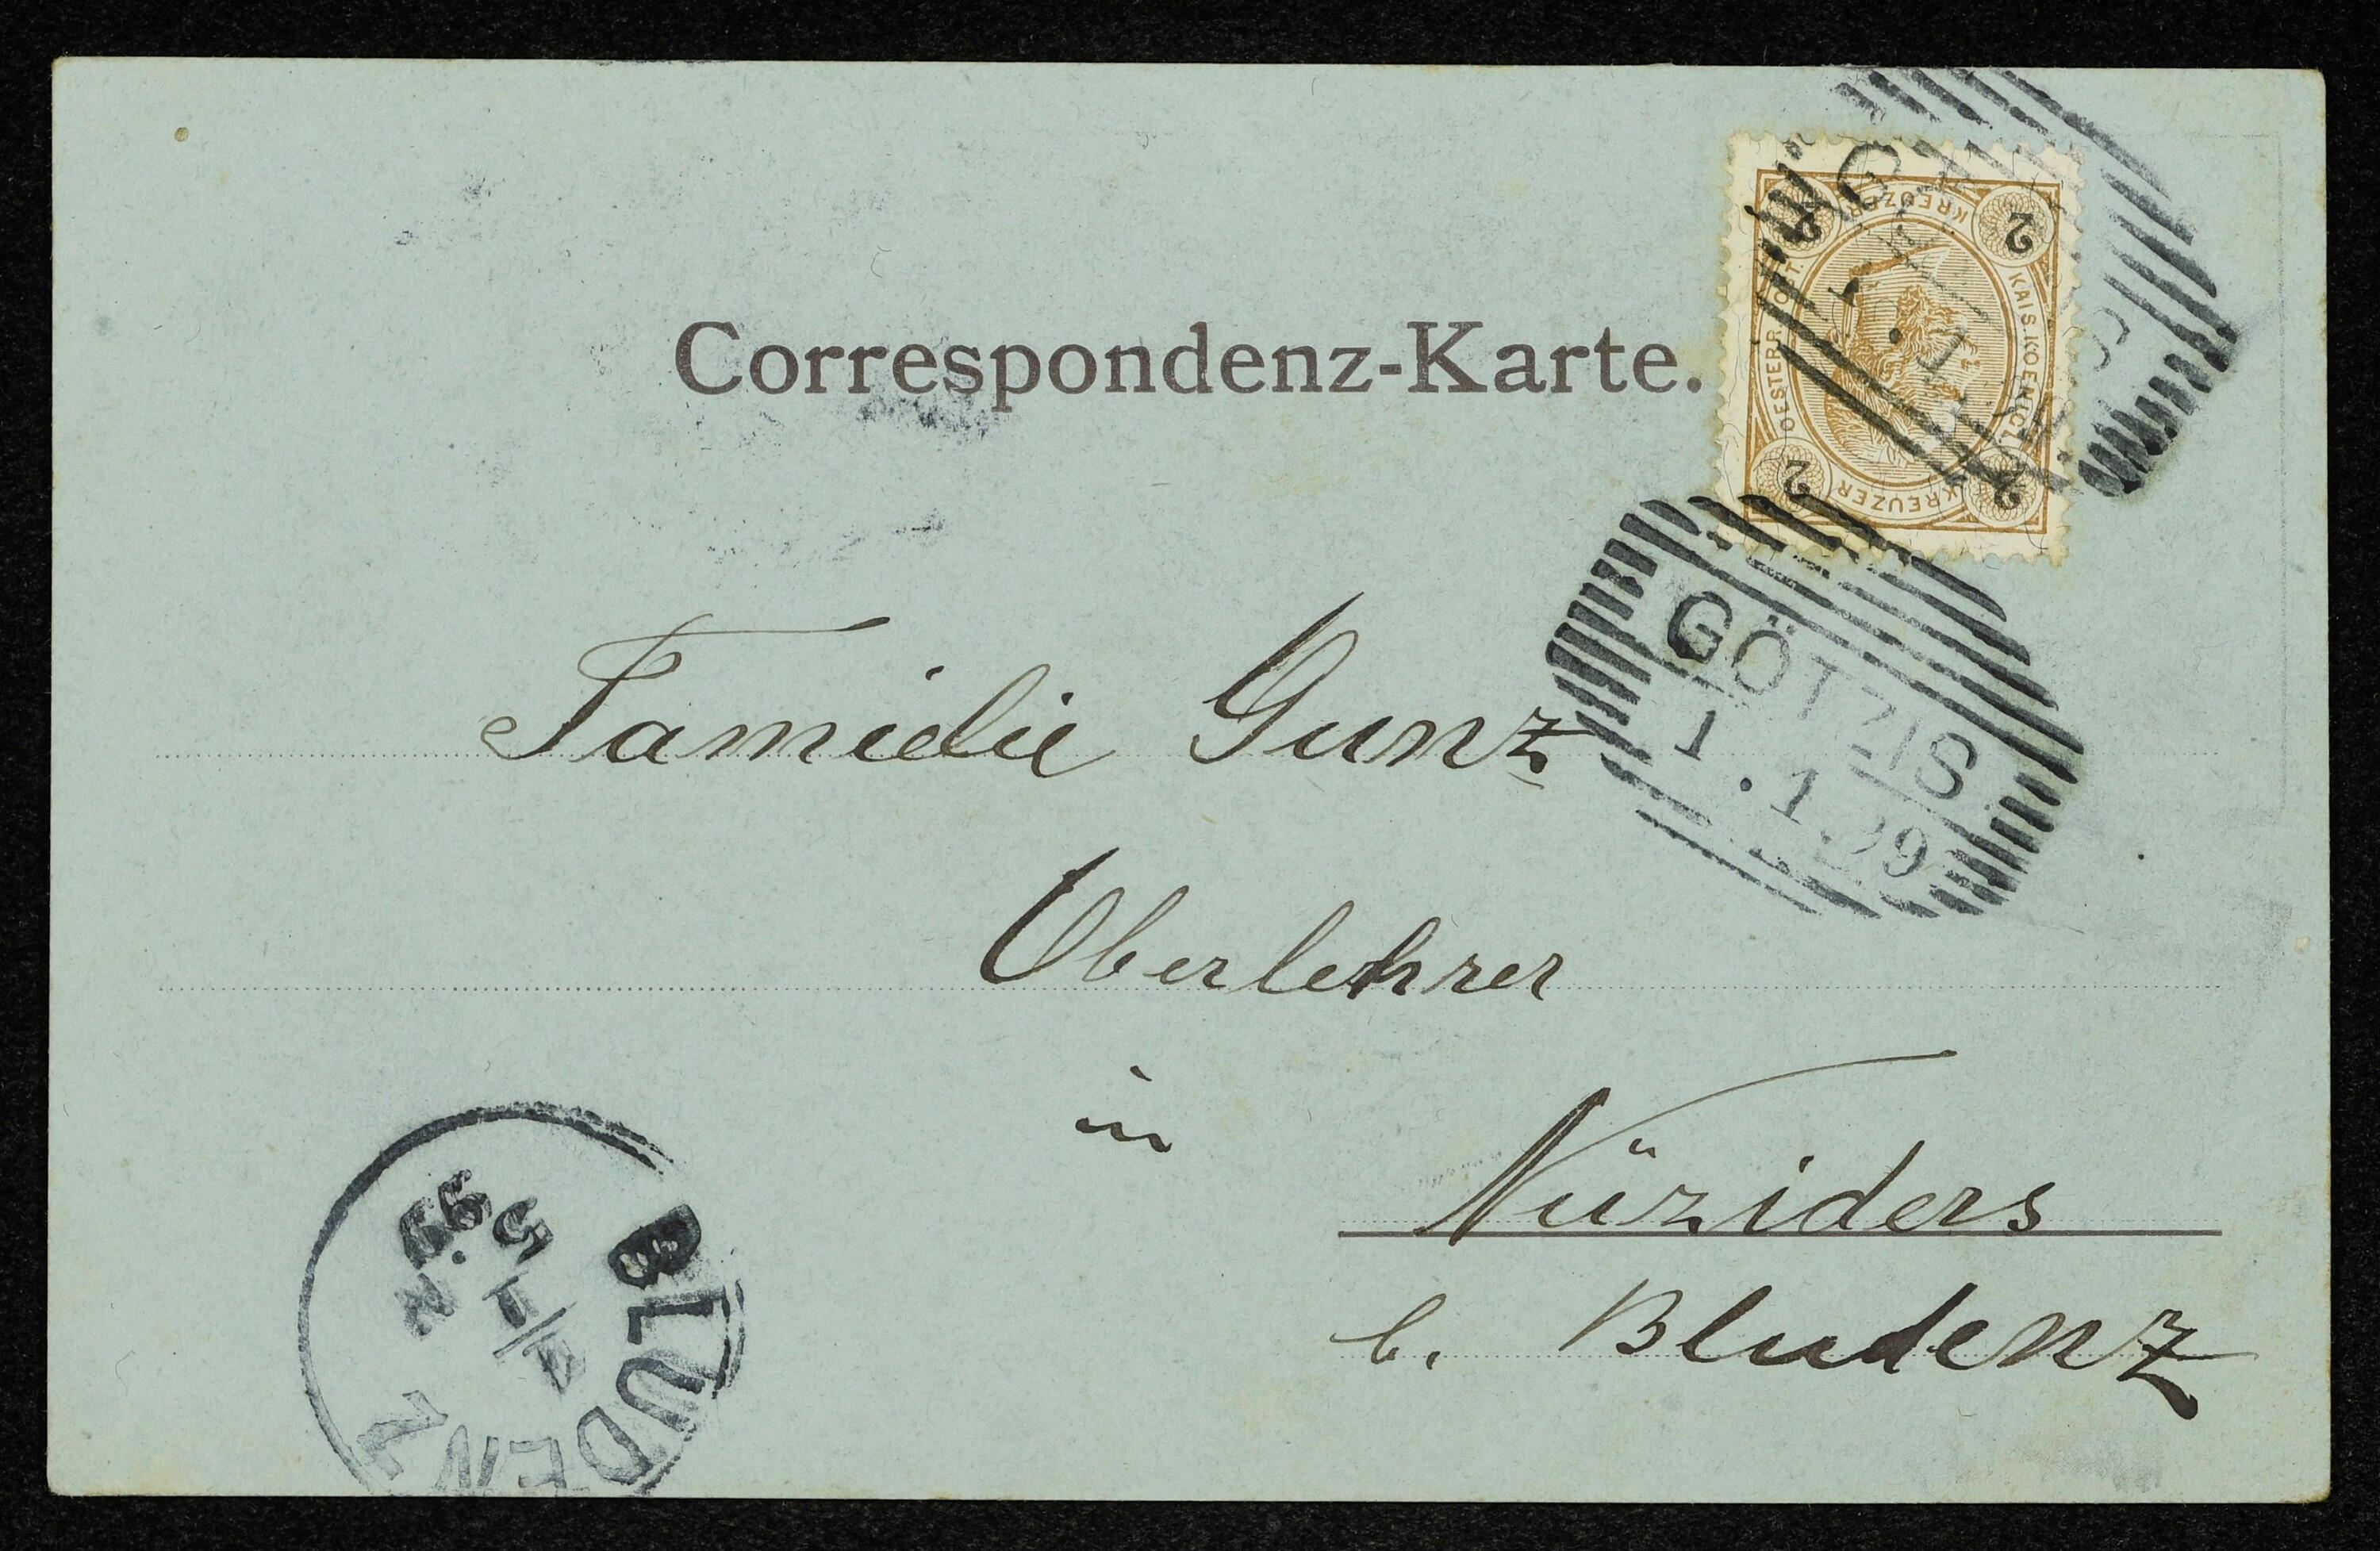 Correspondenz-Karte.
2 KREUZER 2
OESTERR. POST.
KAIS. KOENIGL.
2 KREUZER 2
GÖTZIS
1.1.99
Familie Gunz
Oberlehrer
in
Nüziders
b. Bludenz
BLUDENZ
5
99
N